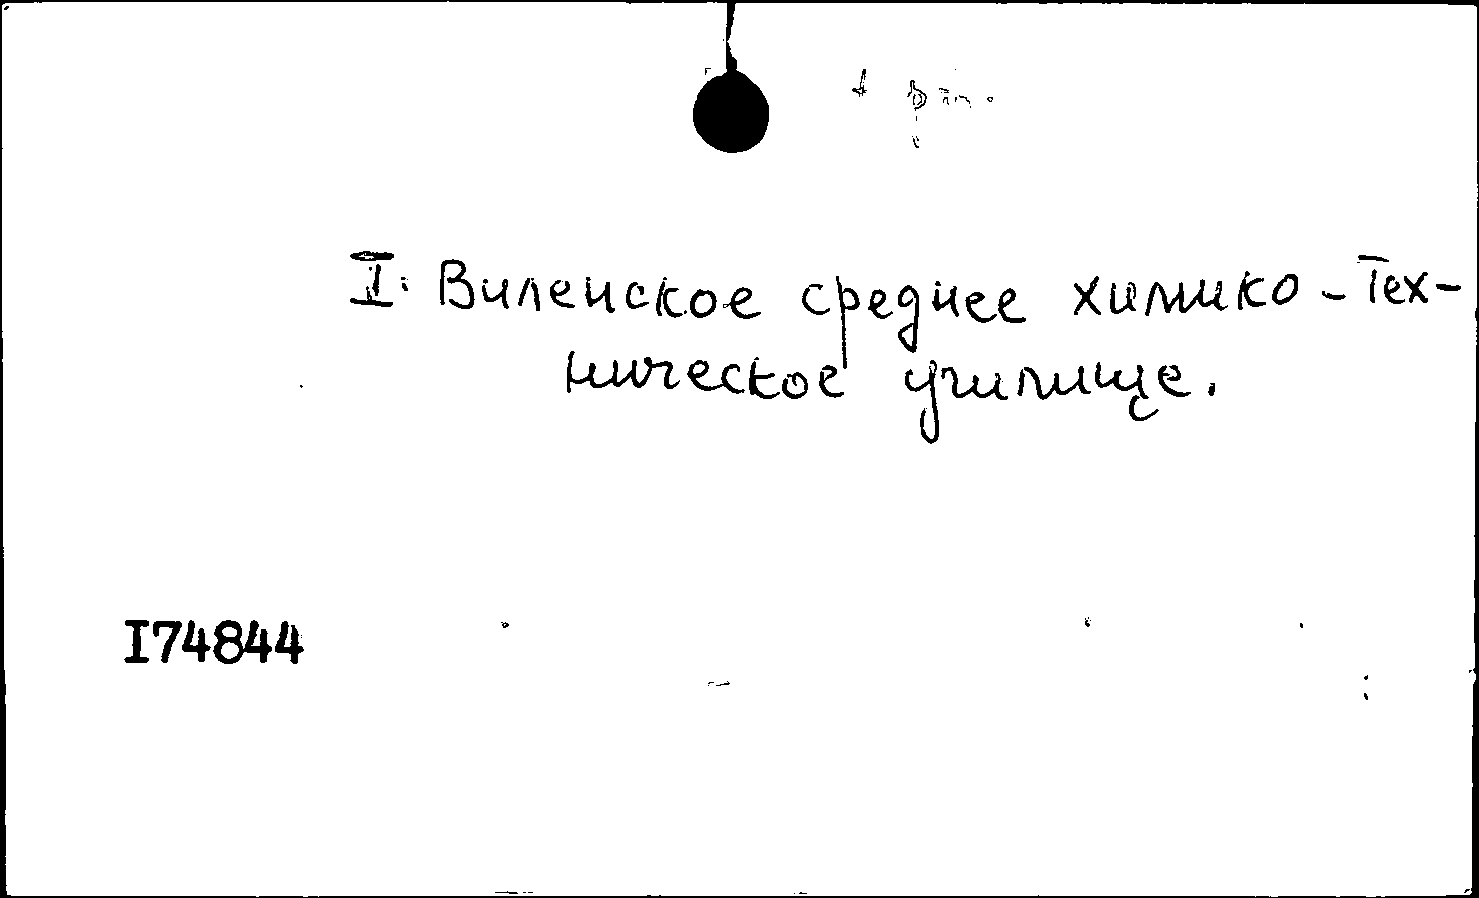 I. Виленское среднее химико-тех-
ническое училище.
I74844